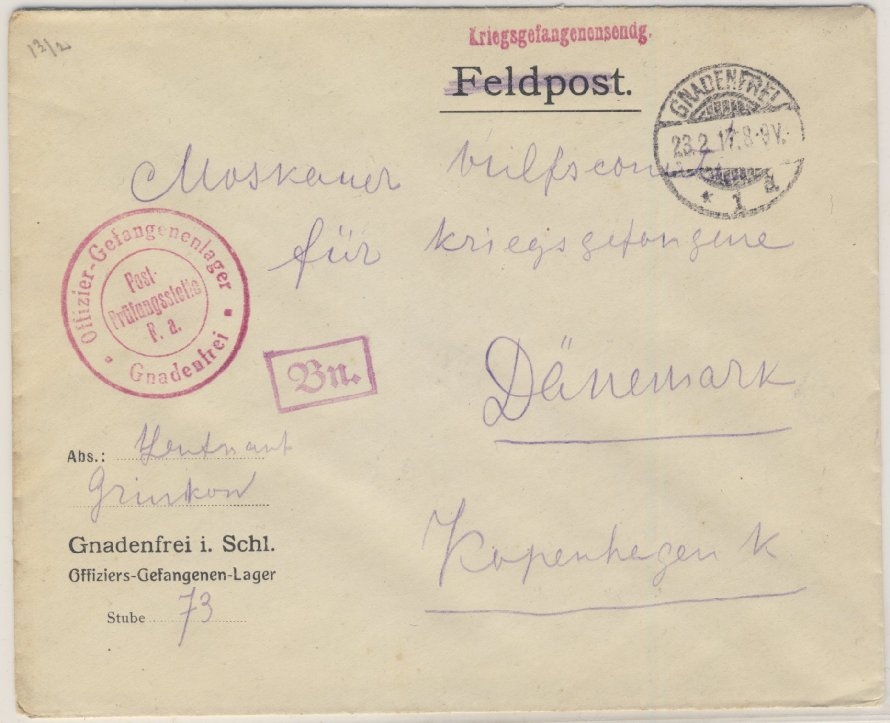 13/2
Kriegsgefangenensendg.
Feldpost.
GNADENFREI
23.2.17.8-9V.
* 1 a
Moskauer Hilfscomite
für kriegsgefangene
Offizier-Gefangenenlager
Post-
Prüfungsstelle
F. a.
Gnadenfrei
Bn.
Dänemark
Abs.: Leutnant
Grinkow
Gnadenfrei i. Schl.
Offiziers-Gefangenen-Lager
Stube 73
Kopenhegen K